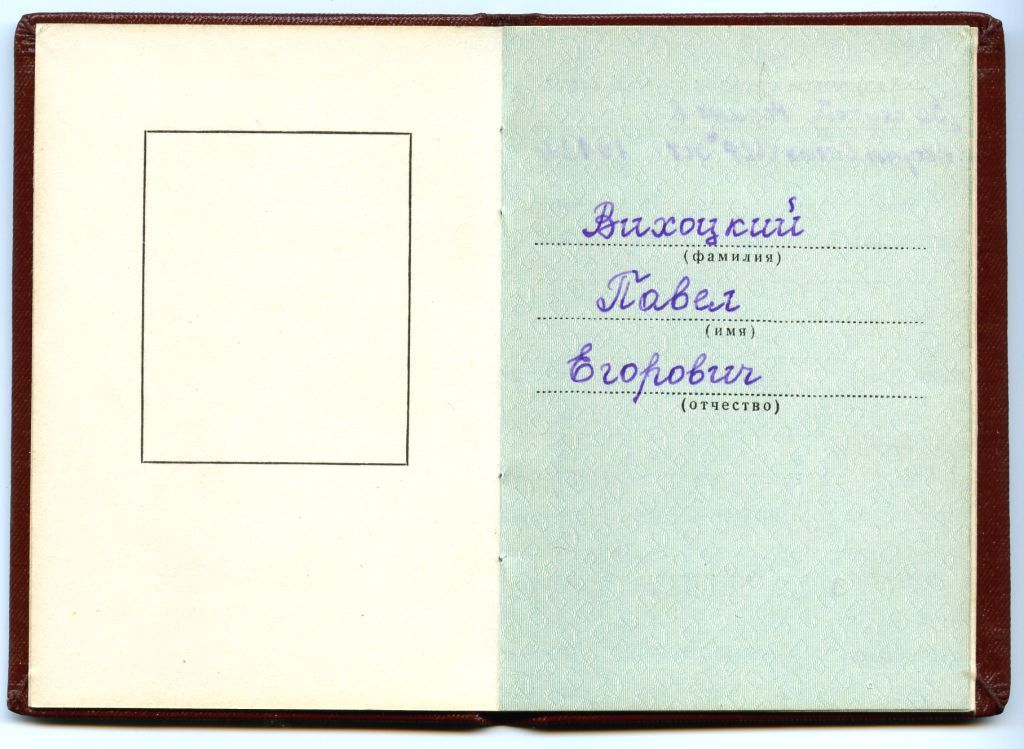 Вихоцкий
(фамилия)
Павел
(имя)
Егорович
(отчество)